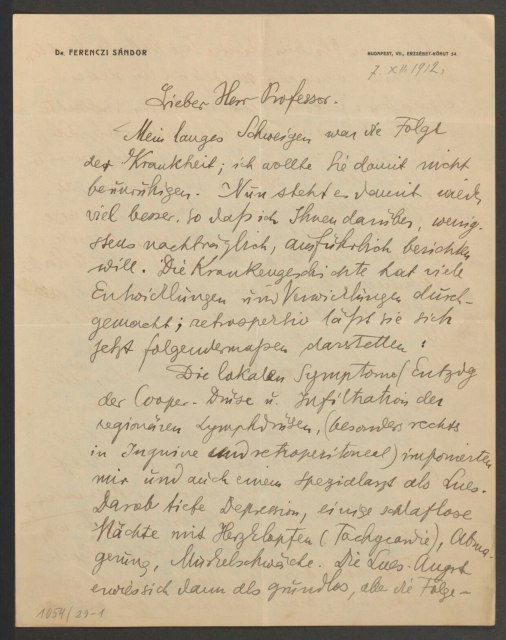 Dr. FERENCZI SÁNDOR
BUDAPEST, VII., ERZSÉBET-KÖRUT 54.
7. XII. 1912.
Lieber Herr Professor.
Mein langes Schweigen war die Folge
der Krankheit; ich wollte Sie damit nicht
beunruhigen. Nun steht es damit wieder
viel besser, so daß ich Ihnen darüber, wenig-
stens nachträglich, ausführlich berichten
will. Die Krankengeschichte hat viele
Entwicklungen und Verwicklungen durch-
gemacht; retrospectiv läßt sie sich
jetzt folgendermaßen darstellen:
Die lokalen Symptome (Entzdg
der Cooper-Drüse u. Infiltration der
regionären Lymphdrüsen, (besonders rechts
in Inguine und retroperitoneal) imponierten
mir und auch einem Spezialarzt als Lues.
Darob tiefe Depression, einige schlaflose
Nächte mit Herzklopfen (Tachycardie), Abma-
gerung, Muskelschwäche. Die Lues-Angst
erwies sich dann als grundlos, aber die Folge-
1054/29-1